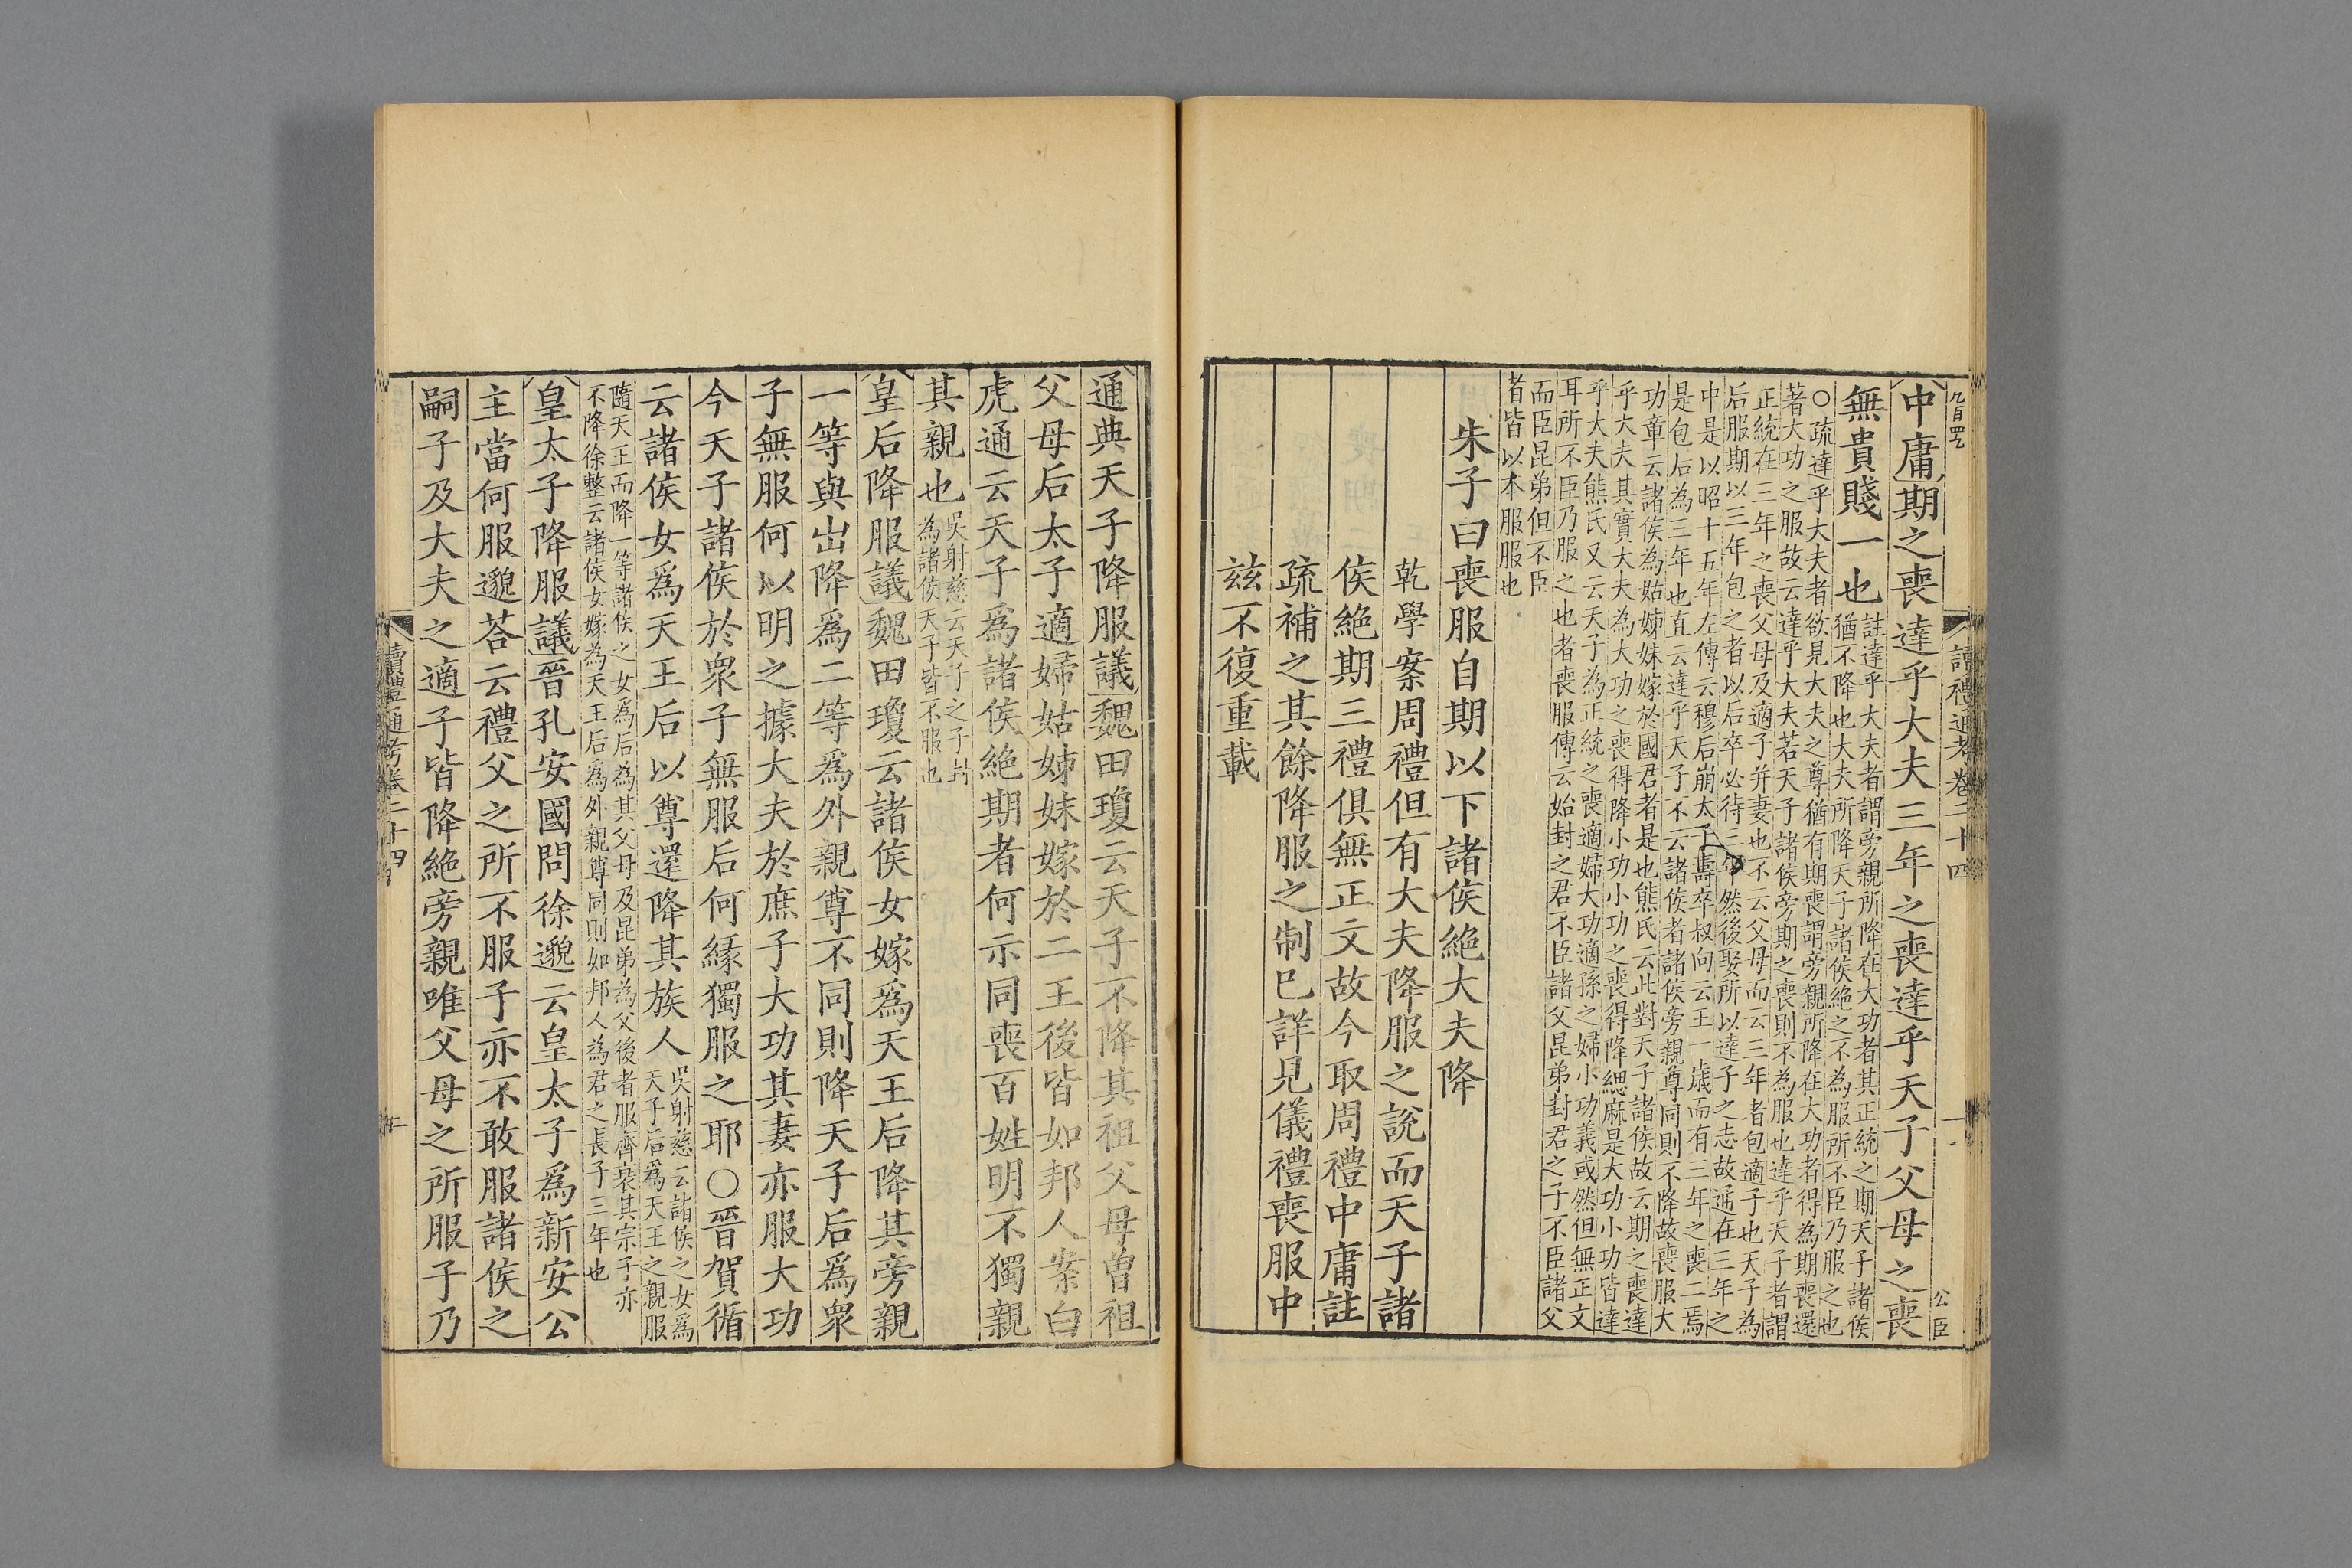 中庸期之喪達乎大夫三年之喪達乎天子父母之喪
無貴賤一也註達乎大夫者謂旁親所降在大功者其正統之期天子諸侯
猶不降也大夫所降天子諸侯絶之不為服所不臣乃服之也
○疏達乎大夫者欲見大夫之尊猶有期喪謂旁親所降在大功者得為期喪還
著大功之服故云達乎大夫若天子諸侯旁期之喪則不為服也達乎天子者謂
正統在三年之喪父母及適子并妻也不云父母而云三年者包適子也天子為
后服期以三年包之者以后卒必待三年然後娶所以達子之志故通在三年之
中是以昭十五年左傳云穆后崩太子壽卒叔向云王一歲而有三年之喪二焉
是包后為三年也直云達乎天子不云諸侯者諸侯旁親尊同則不降故喪服大
功章云諸侯為姑姊妹嫁於國君者是也熊氏云此對天子諸侯故云期之喪達
乎大夫其實大夫為大功之喪得降小功小功之喪得降緦麻是大功小功皆達
乎大夫熊氏又云天子為正統之喪適婦大功適孫之婦小功義或然但無正文
耳所不臣乃服之也者喪服傳云始封之君不臣諸父昆弟封君之子不臣諸父
而臣昆弟但不臣
者皆以本服服也
朱子曰喪服自期以下諸侯絶大夫降
乾學案周禮但有大夫降服之說而天子諸
侯絶期三禮俱無正文故今取周禮中庸註
疏補之其餘降服之制已詳見儀禮喪服中
兹不復重載
讀禮通考卷二十四
通典天子降服議魏田瓊云天子不降其祖父母曾祖
父母后太子適婦姑姊妹嫁於二王後皆如邦人案白
虎通云天子為諸侯絶期者何示同喪百姓明不獨親
其親也吳射慈云天子之子封
為諸侯天子皆不服也
皇后降服議魏田瓊云諸侯女嫁為天王后降其旁親
一等與出降為二等為外親尊不同則降天子后為衆
子無服何以明之據大夫於庶子大功其妻亦服大功
今天子諸侯於衆子無服后何緣獨服之耶○晉賀循
云諸侯女為天王后以尊還降其族人吳射慈云諸侯之女為
天子后為天王之親服
隨天王而降一等諸侯之女為后為其父母及昆弟為父後者服齊衰其宗子亦
不降徐整云諸侯女嫁為天王后為外親尊同則如邦人為君之長子三年也
皇太子降服議晉孔安國問徐邈云皇太子為新安公
主當何服邈荅云禮父之所不服子亦不敢服諸侯之
嗣子及大夫之適子皆降絶旁親唯父母之所服子乃
讀禮通考卷二十四